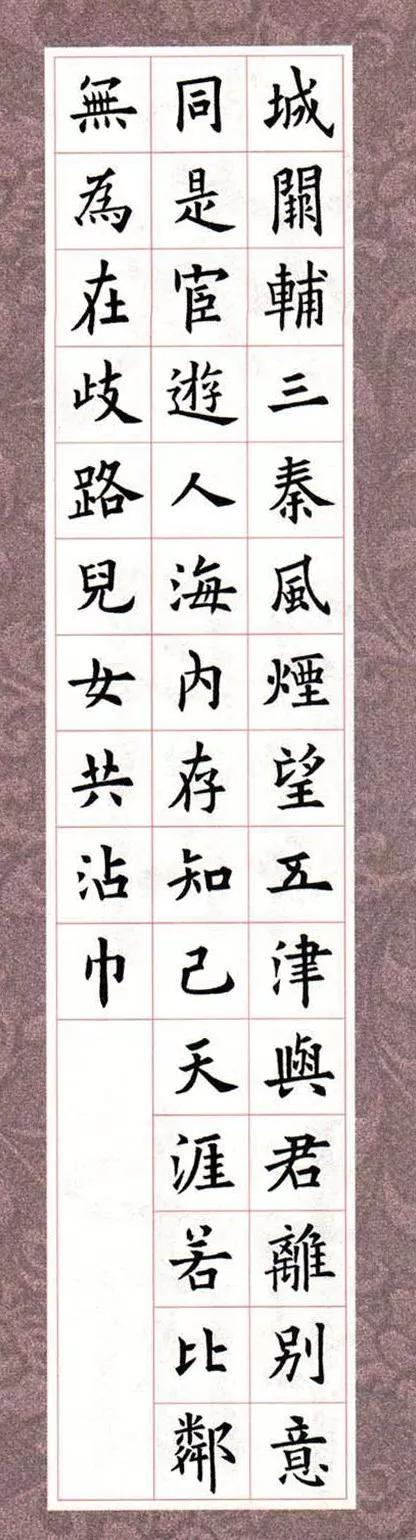 城闕輔三秦風煙望五津與君離別意
同是宦遊人海內存知己天涯若比鄰
無為在歧路兒女共沾巾